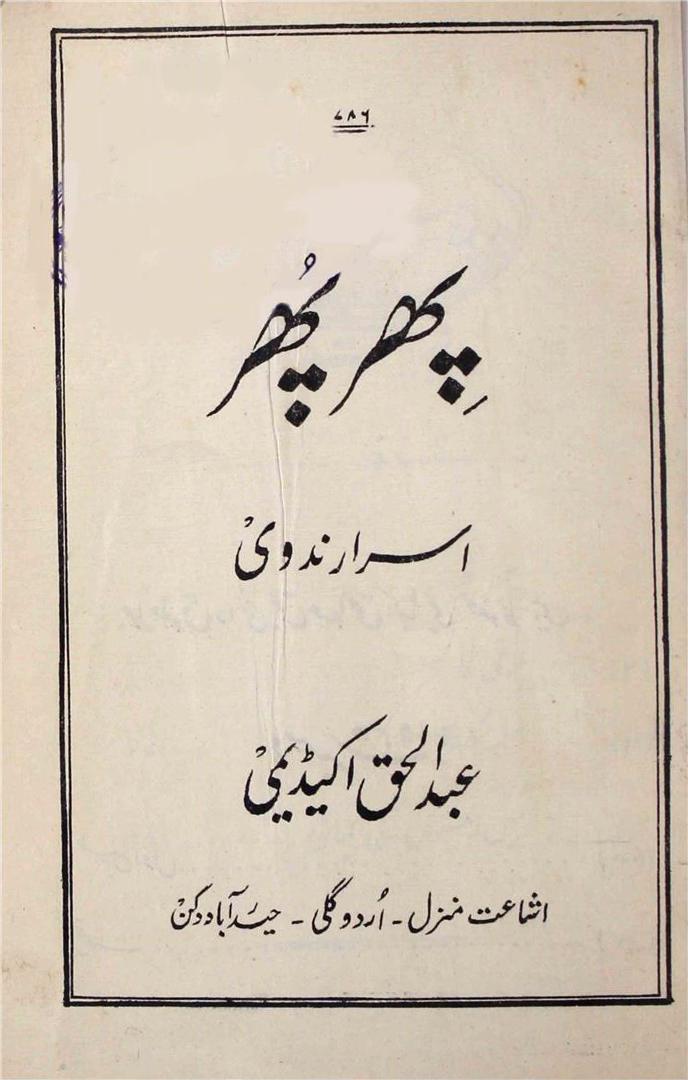 ۷۸۶
پِھر پُھر
اسرار ندوی
عبدالحق اکیڈیمی
اشاعت منزل - اُردو گلی - حیدرآباد دکن